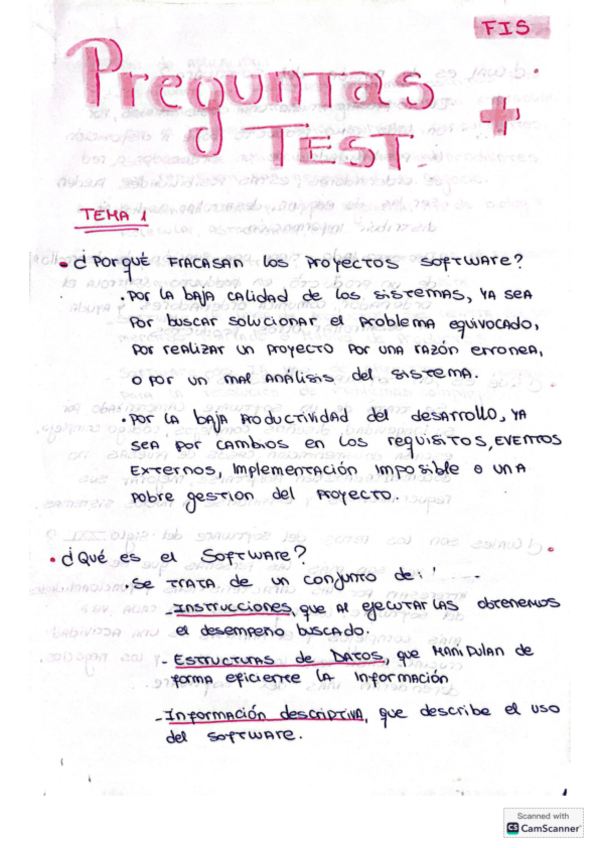 FIS
Preguntas
TEST.
+
TEMA 1
• ¿Porqué fracasan los proyectos software?
. Por la baja calidad de los sistemas, ya sea
por buscar solucionar el problema equivocado,
por realizar un proyecto por una razón erronea,
o por un mal análisis del sistema.
. Por la baja productividad del desarrollo, ya
sea por cambios en los requisitos, eventos
externos, implementación imposible o una
pobre gestion del proyecto.
• ¿Qué es el software?
. Se trata de un conjunto de:
- Instrucciones, que al ejecutarlas obtenemos
el desempeño buscado.
- Estructuras de datos, que manipulan de
forma eficiente la información
- Información descriptiva, que describe el uso
del software.
Scanned with
CS CamScanner